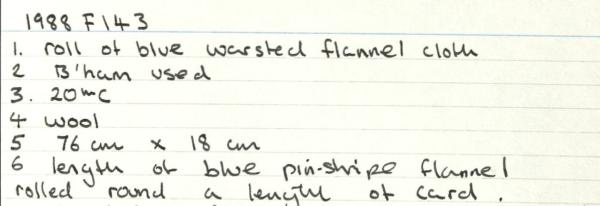 1988 F 143
1. roll of blue warsted flannel cloth
2 B'ham used
3. 20thC
4 wool
5 76 cm x 18 cm
6 length of blue pin-stripe flannel
rolled round a length of card.